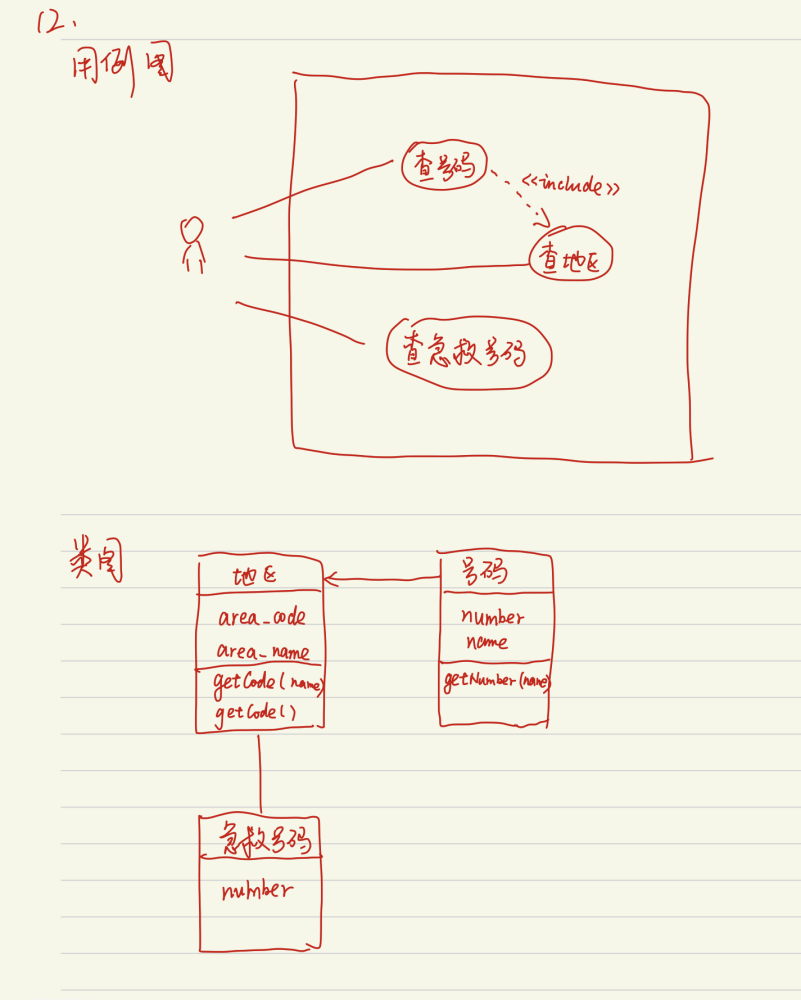 12.
用例图
查号码
<<include>>
查地区
查急救号码
类图
地区
area_code
area_name
getCode(name)
getCode()
号码
number
name
getNumber(name)
急救号码
number